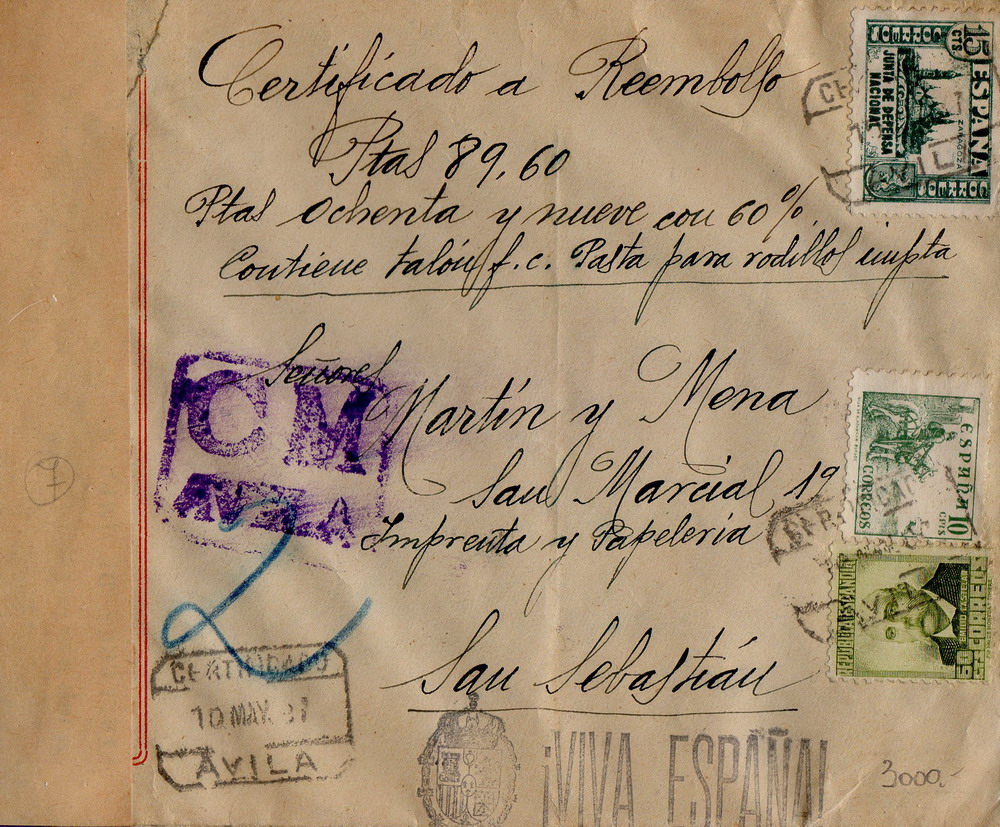 Certificado a Reembolso
Ptas 89,60
Ptas Ochenta y nueve con 60%.
Contiene talón f.c. Pasta para rodillos impta
Señores
Martín y Mena
San Marcial 19
Imprenta y Papeleria
San Sebastián
CM
2
7
CERTIFICADO
10 MAY. 37
AVILA
¡VIVA ESPAÑA!
3000.-
CORREOS
15 CTS.
ESPAÑA
JUNTA DE DEFENSA
NACIONAL
ZARAGOZA
CORREOS
ESPAÑA
CORREOS
10 CTS
REPUBLICA ESPAÑOLA
CORREOS